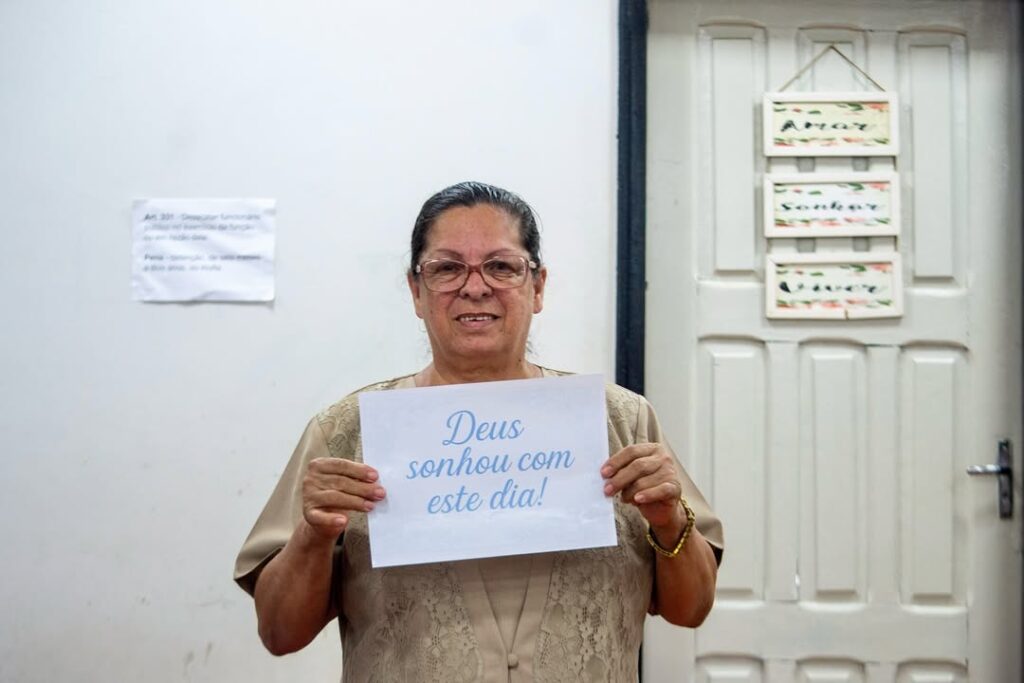 Art. 331 - Desacatar funcionário
público no exercício da função
ou em razão dela
Pena - detenção, de seis meses
a dois anos, ou multa
Deus
sonhou com
este dia!
Amar
Sonhar
Viver